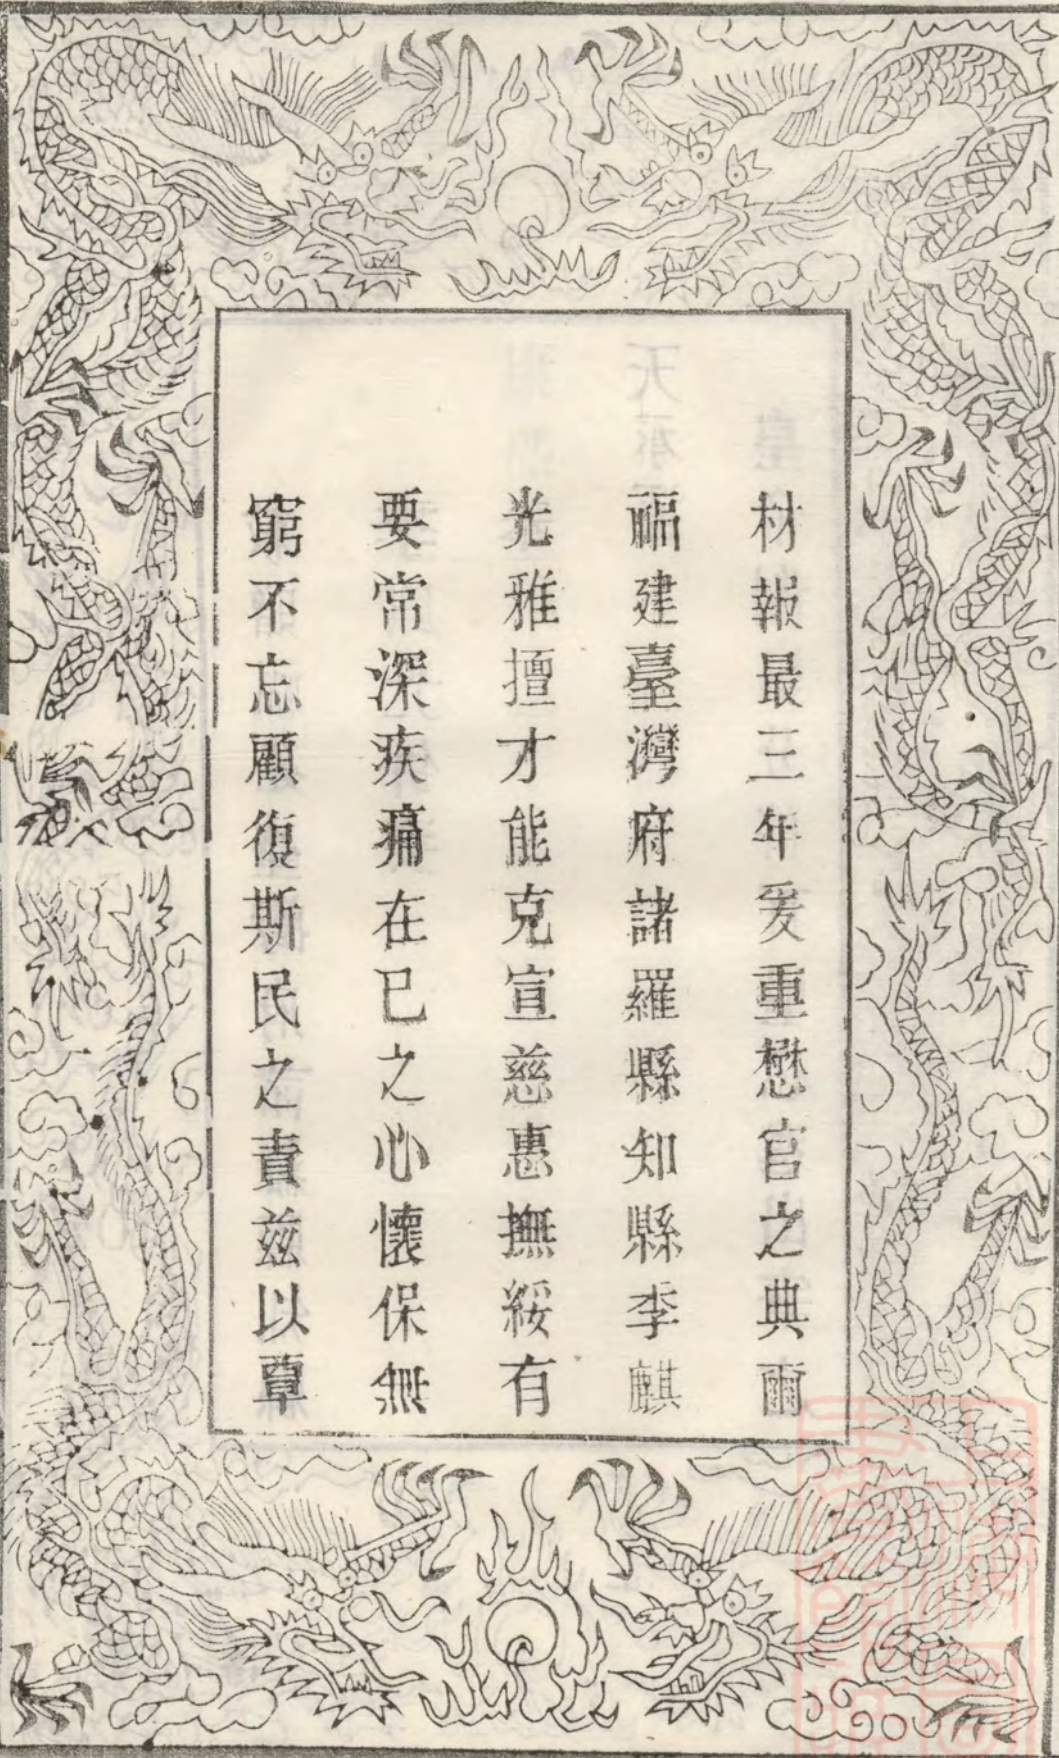 材報最三年爰重懋官之典爾
福建臺灣府諸羅縣知縣李麒
光雅擅才能克宣慈惠撫綏有
要常深疾痛在已之心懷保無
窮不忘顧復斯民之責茲以覃